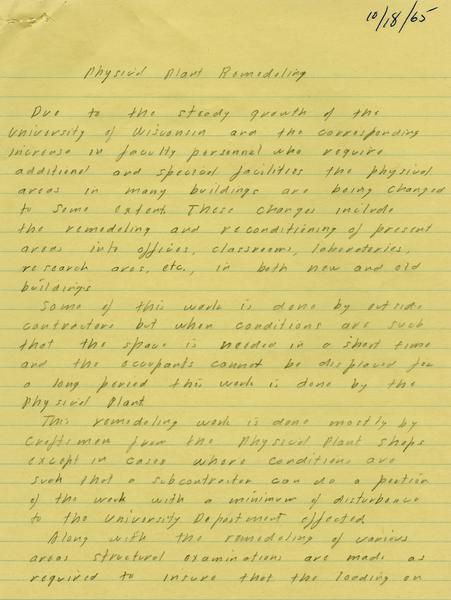 10/18/65
Physical Plant Remodeling
Due to the steady growth of the
University of Wisconsin and the corresponding
increase in faculty personnel who require
additional and special facilities the physical
areas in many buildings are being changed
to some extent. These changes include
the remodeling and reconditioning of present
areas into offices, classrooms, laboratories,
research areas, etc., in both new and old
buildings
Some of this work is done by outside
contractors but when conditions are such
that the space is needed in a short time
and the occupants cannot be displaced for
a long period this work is done by the
Physical Plant
This remodeling work is done mostly by
Craftsmen from the Physical Plant shops
except in cases where conditions are
such that a subcontractor can do a portion
of the work with a minimum of disturbence
to the University Department effected
Along with the remodeling of various
areas structural examinations are made as
required to insure that the loading on